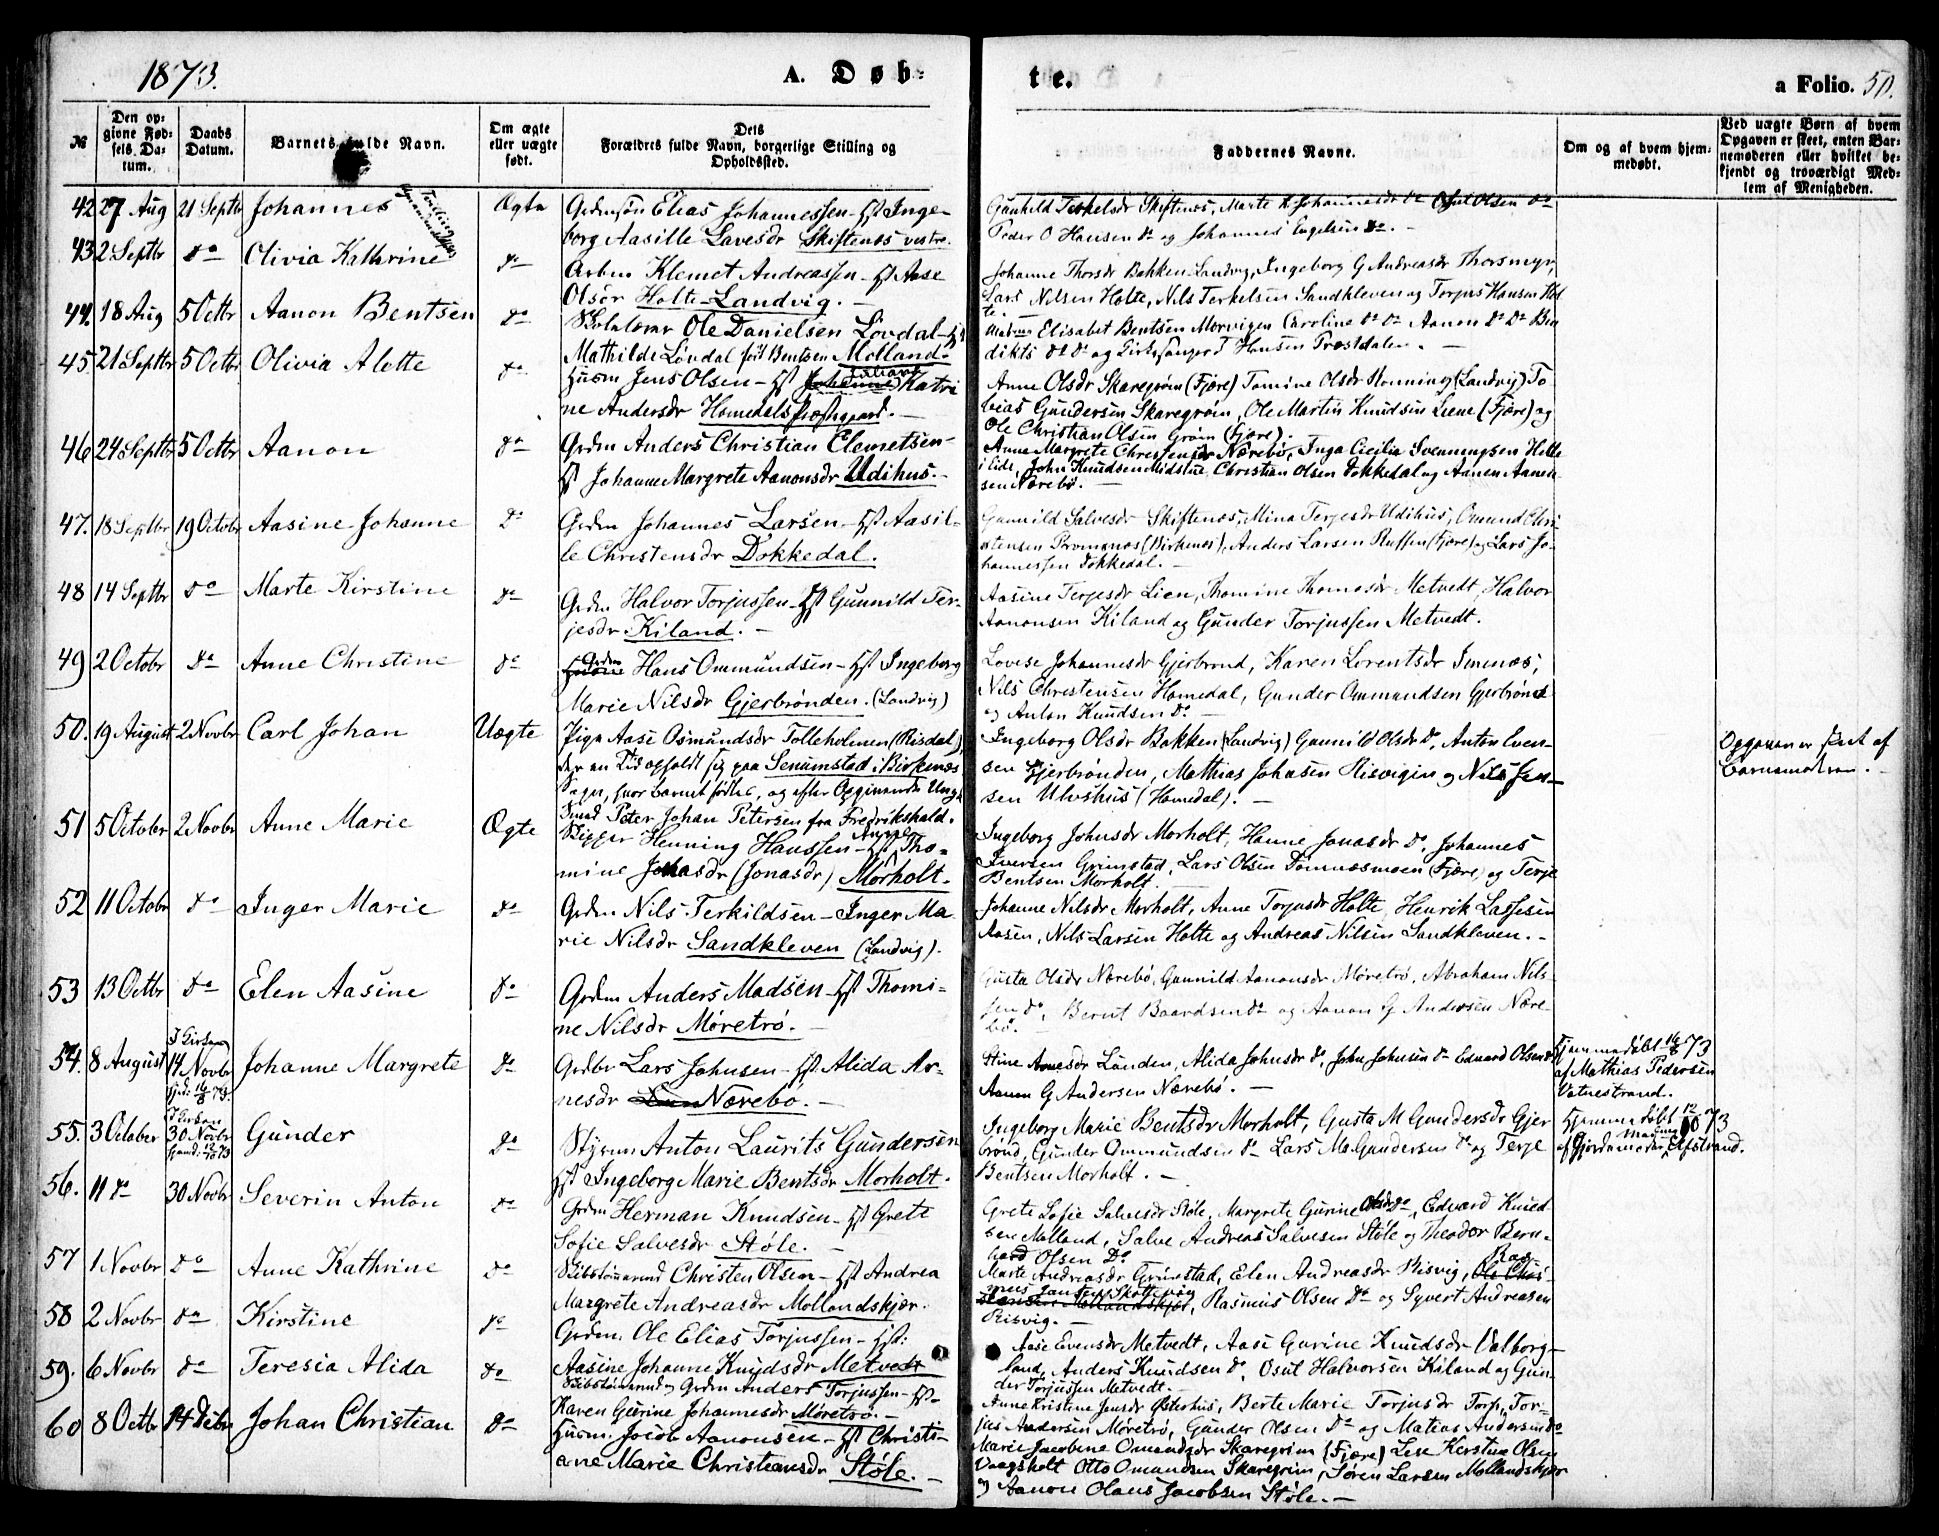 1873.
A. Døb-
te.
a Folio. 50.
№
Den opgivne Fødsels Datum.
Daabs Datum.
Barnets fulde Navn.
Om ægte eller uægte født.
Dets Forældres fulde Navn, borgerlige Stilling og Opholdssted.
Faddernes Navne.
Om og af hvem hjemmedøbt.
Ved uægte Børn af hvem Opgaven er skeet, enten Barnemoderen eller hvilket bekjendt og troværdigt Medlem af Menigheden.
42 27 Aug 21 Septbr Johannes Ægte
Grdmsøn Elias Johannessen - Hst Inge-
borg Aasille Lavesdr Skiftenes vestre.
Gunhild Terkelsdr Skiftenes, Marte K Johannesdr do Osul Olsen do
Peder O Hansen do og Johannes Engelsen do. -
43 2 Septbr do Olivia Kathrine do
Arbm Klemet Andreassen - Hst Aase
Olsdr Holte - Landvig. -
Johanne Thorsdr Bakken Landvig, Ingeborg G Andreasdr Thorsmyr,
Lars Nilsen Holte, Nils Terkelsen Sandkleven og Torjus Hansen Hol
te. -
44. 18 Aug 5 Octbr Aanon Bentsen do
Skolelærer Ole Danielsen Løvdal - Hst
Mathilde Løvdal født Bentsen Molland.
Madme Elisabet Bentsen Morvigen Caroline do do Aanon do do Ben
dikts do do og Kirkesanger T Hansen Præstdalen. -
45. 21 Septbr 5 Octbr Olivia Alette do
Husm Jens Olsen - Hst Johanne Katri
ne Andersdr Homedals Præstegaard. -
Anne Olsdr Skaregrøm (Fjære) Tomine Olsdr Rønning (Landvig) To
bias Gundersen Skaregrøm, Ole Martin Knudsen Liene (Fjære) og
Ole Christian Olsen Grøm (Fjære).
46 24 Septbr 5 Octbr Aanon do
Grdm Anders Christian Clemetsen -
Hst Johanne Margrete Aanonsdr Udihus. -
Anne Margrete Christensdr Nærebø, Inga Cecilia Svenningsen Holte
i Eide, John Knudsen Midstue, Christian Olsen Dokkedal og Aanen Aanon
sen Nærebø. -
47. 18 Septbr 19 Octobr Aasine Johanne do
Grdm Johannes Larsen - Hst Aasil-
le Christensdr Dokkedal.
Gunnild Salvesdr Skiftenes, Mina Terjesdr Udihus, Omund Chri
stensen Promenes (Birkenes), Anders Larsen Ruffen (Fjære) og Lars Jo-
hannessen Dokkedal. -
48 14 Septbr do Marte Kirstine do
Grdm Halvor Torjussen - Hst Gunnild Ter-
jesdr Kiland. -
Aasine Terjesdr Lien, Thomine Thomasdr Metvedt, Halvor
Aanonsen Kiland og Gunder Torjussen Metvedt.
49 2 Octobr do Anne Christine do
Grdm Hans Ommundsen - Hst Ingeborg
Marie Nilsdr Gjerbrønden. (Landvig)
Lovise Johannesdr Gjerbrønd, Karen Lorentsdr Imenæs,
Nils Christensen Homedal, Gunder Ommundsen Gjerbrønd
og Anton Knudsen do -
50. 19 August 2 Novbr Carl Johan Uægte
Pige Aase Osmundsdr Tolleholmen (Risdal)
der en Tid opholdt sig paa Senumstad i Birkenes
Sogn, hvor Barnet fødtes, og efter Opgivende Ungk
Smed Peter Johan Petersen fra Fredrikshald.
Ingeborg Olsdr Bakken (Landvig) Gunnild Olsdr do. Anton Even-
sen Gjerbrønden, Mathias Johnsen Risvigen og Nils Jen-
sen Ulvehus (Homedal). -
Opgaven er skeet af
Barnemoderen. -
51 5 Octobr 2 Novbr Anne Marie Ægte
Skipper Henning Hanssen - Hst Tho-
mine Jonasdr (Jonasdr) Morholt.
Ingeborg Johnsdr Morholt, Hanne Jonasdr do. Johannes
Iversen Grimstad, Lars Olsen Dømmesmoen (Fjære) og Terje
Bentsen Morholt. -
52 11 Octobr do Inger Marie do
Grdm Nils Terkildsen - Inger Ma
rie Nilsdr Sandkleven (Landvig).
Johanne Nilsdr Morholt, Anne Torjusdr Holte, Henrik Lassesen
Aasen, Nils Larsen Holte og Andreas Nilsen Sandkleven. -
53 13 Octbr do Elen Aasine do
Grdm Anders Madsen - Hst Thomi-
ne Nilsdr Møretrø. -
Gusta Olsdr Nærebø, Gunnild Aanonsdr Møretrø, Abraham Nils-
sen do, Bernt Baardsen do og Aanon G Andersen Nære
bø. -
54. 8 August I Kirken 14 Novbr hjd: 16/8 73. Johanne Margrete do
Grdbr Lars Johnsen - Hst Alida Ar-
nesdr Nærebø. -
Stine Arnesdr Lunden, Alida Johnsdr do, John Johnsen do Edvard Olsen do
Aanon G Andersen Nærebø. -
Hjemmedøbt 16/8 73
af Mathias Pedersen
Vatnestrand.
55. 3 October I Kirken 30 Novbr hjemd: 12/10 73 Gunder do
Styrm Anton Laurits Gundersen
Hst Ingeborg Marie Bentsdr Morholt.
Ingeborg Marie Bentsdr Morholt, Gusta M Gundersdr Gjer
brønd, Gunder Ommundsen do Lars M. Gundersen do og Terje
Bentsen Morholt. -
Hjemmedøbt 12/10 73
af Gjordemoder Efstrand.
56. 11 do 30 Novbr Severin Anton do
Grdm Herman Knudsen - Hst Grete
Sofie Salvesdr Støle. -
Grete Sofie Salvesdr Støle, Margrete Gurine Olsdr do, Edvard Knud
sen Molland, Salve Andreas Salvesen Støle og Theodor Bern-
hard Olsen do
57 1 Novbr do Anne Kathrine do
Skibstømrmd Christen Olsen - Hst Andrea
Margrete Andreasdr Mollandskjær.
Marte Andreasdr Grimstad, Elen Andreasdr Risvig, Ras
mus Jansen Skottevig, Rasmus Olsen do og Syvert Andreasen
Risvig. -
58 2 Novbr do Kirstine do
Grdm. Ole Elias Torjussen - Hst:
Aasine Johanne Knudsdr Metvedt
Aase Evensdr Metvedt, Aase Gurine Knudsdr Valborg-
land, Anders Knudsen do, Osul Halvorsen Kiland og Gun-
der Torjussen Metvedt. -
59. 6 Novbr do Teresia Alida do
Skibstømmermd og Grdm Anders Torjussen - Hst.
Karen Gurine Johannesdr Møretrø. -
Anne Kristine Jensdr Østerhus, Berte Marie Torjusdr Torp, Tor-
jus Andersen Møretrø, Gunder Olsen do og Matias Andersen do
60 8 Octbr 14 Decbr Johan Christian do
Husm. Jocob Aanonsen - Hst Christi-
ane Marie Christensdr Støle. -
Marie Jacobine Omundsdr Skaregrøm (Fjære) Lese Kirstine Olsen
Vaagsholt Otto Omundsen Skaregrøm, Søren Larsen Mollandskjær
og Aanon Olaus Jacobsen Støle. -